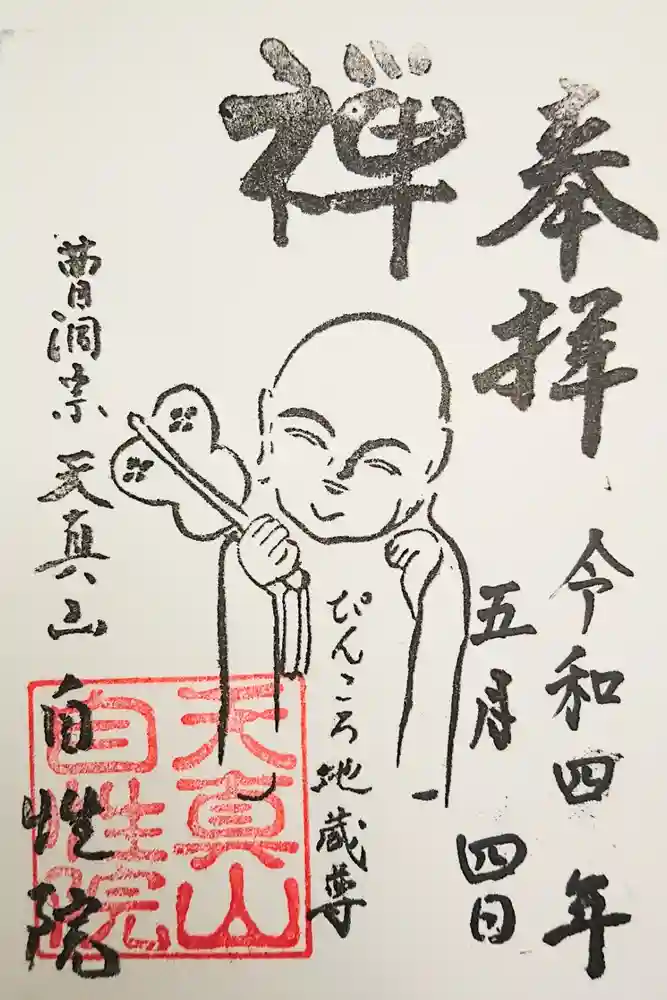 奉拝
令和四年
五月四日
禅
ぴんころ地蔵尊
天真山
自性院
曹洞宗天真山自性院